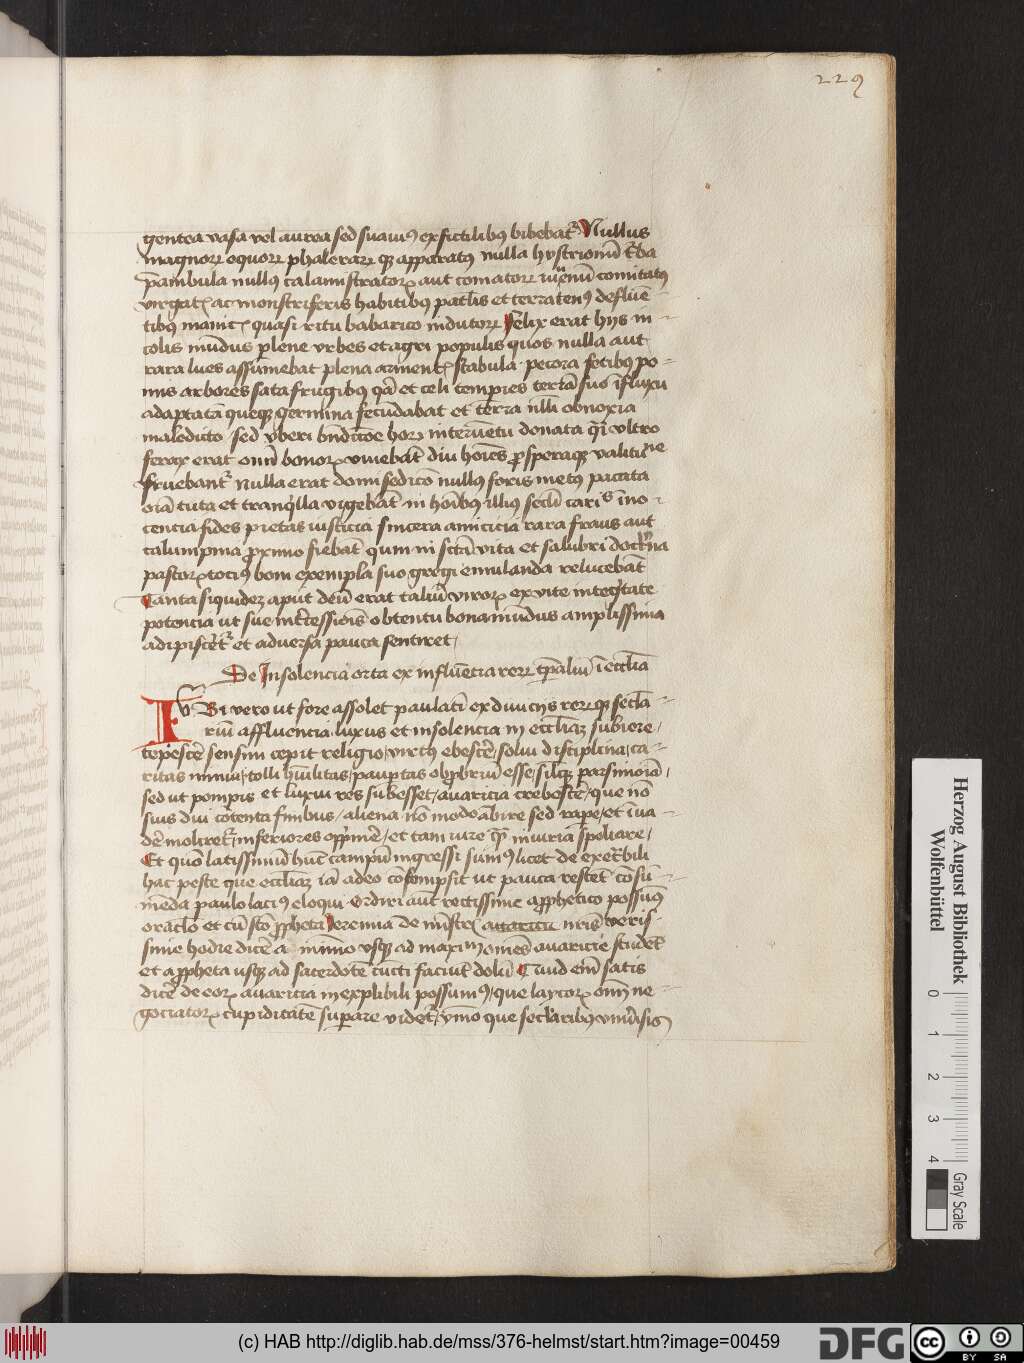 229
gentea vasa vel aurea sed suauiꝰ ex fictilibꝫ bibebat᷑ Nullus
magnoꝝ equoꝝ phaleraꝝ qꝫ apparatꝰ nulla hystrionū t᷑ba
p̄ambula nullꝰ calamistratoꝝ aut comatoꝝ iuuenū comitatꝰ
virgatꝭ ac monstriferis habitibꝫ patul̄is et terratenꝰ defluē
tibꝫ manicꝭ quasi ritu babarico indutoꝝ Felix erat hijs in
colis mūdus plene vrbes et agri populis quos nulla aut
rara lues assumebat plena armentꝭ stabula pecora fetibꝫ po
mis arbores sata frugibꝫ qm̄ et celi temperies terrā suo īfluxu
adaptatā queqꝫ germina fecūdabat et terra nll̄i obnoxia
maledicto sed vberi bn̄dictōe hoꝝ interuētu donata q̄si vltro
ferax erat om̄i bonoꝝ viuebāt diu hoīes ꝓsperaqꝫ valitu ne
fruebant᷑ Nulla erat domi sedicō nullꝰ foris metꝰ pacata
oīa tuta et tranqͥlla vigebāt in hoībꝫ illiꝰ secl̄i caritꝭ īno
cencia fides pietas iusticia sincera amicicia rara fraus aut
calumpnia ꝓximo fiebat qm̄ in sc̄tā vita et salubri doctͥna
pastoꝝ tociꝰ boni exempla suo gregi emulanda relucebāt
Tanta siquidez aput deū erat taliū viroꝝ ex vite integͥtate
potencia ut sue int᷑cessionis obtentu bona mūdus amplissima
adipisceret᷑ et aduersa pauca sentiret
De Insolencia orta ex influēcia reꝝ tꝑaliū ī ecclīa
Ubi vero ut fore assolet paulatī ex diuicijs reꝝqꝫ secl̄a
riū affluencia luxus et insolencia in eccl̄iaz subiere
tepescē sensim cepit religio virtꝰ ebescē solui disciplina ca
ritas minui tolli hūilitas paup̄tas obprobriū esse silqꝫ parsimonia
sed ut pompis et luxui res subesset auaricia crebescē que nō
suis diu cōtenta finibus aliena nō modo ābire sed rapē et īua
dē moliret᷑ inferiores opp̄mē et tam iure qͣꝫ iniuria spoliare
Et quō latissimū hūc campū ingressi sumꝰ licet de execͣbili
hac peste que eccl̄iaz iā adeo cōsumpsit ut pauca restēt cōsu
menda paulo laciꝰ eloqui ordiri aut rectissime a ꝓphetico possumꝰ
oracl̄o et cū scō ꝓpheta Jeremia de mīstrꝭ auaricie nr̄is veris
sime hodie dicē a minimo vsqꝫ ad maximū om̄es auaricie studēt
et a ꝓpheta usqꝫ ad sacerdotē cūcti faciūt dolū Quid enī satis
dicē de eoꝝ auaricia inexplibili possumꝰ que laycoꝝ om̄i ne
gociatoꝝ cupiditatē suꝑare videt᷑ ymō que secl̄aribꝫ vniūsis
Herzog August Bibliothek
Wolfenbüttel
0 1 2 3 4
Gray Scale
(c) HAB http://diglib.hab.de/mss/376-helmst/start.htm?image=00459
DFG
cc BY SA